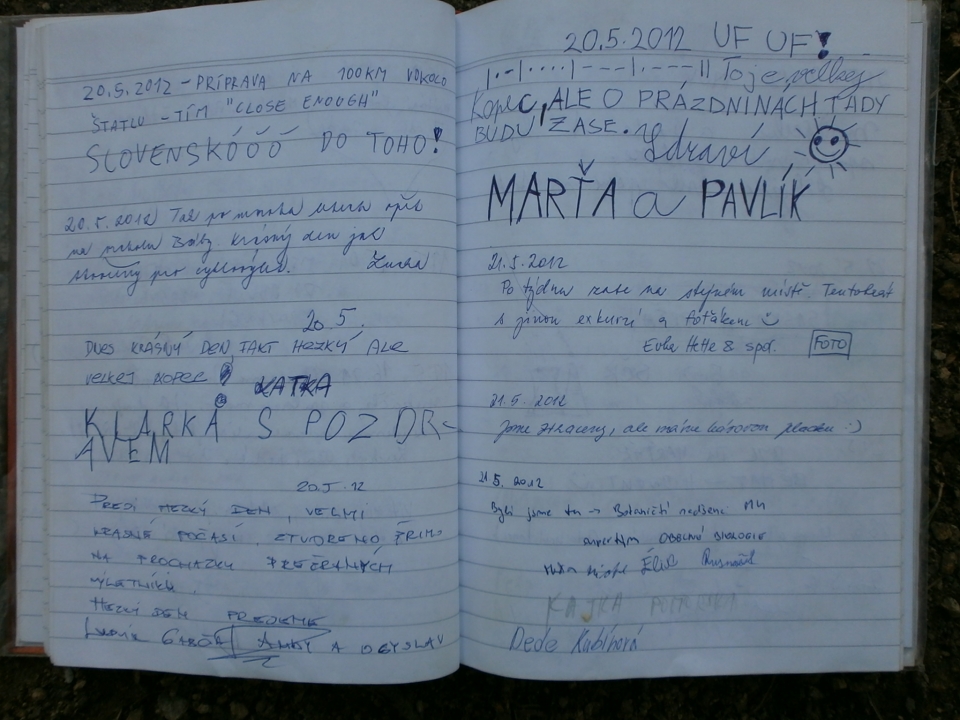 20.5.2012 - PRÍPRAVA NA 100KM VOKOLO
ŠTATLU - TÍM "CLOSE ENOUGH"
SLOVENSKÓÓÓ DO TOHO!
20.5.2012 Tak po mnoha letech opět
na vrcholu Báby. Krásný den jak
stvořený pro cyklovýlet. Zuzka
20.5.
DNES KRÁSNÝ DEN, TAKT HEZKÝ ALE
VELKEJ KOPEC
KATKA
KLARKA S POZDR-
AVEM
20.5.12
HEZKÝ DEN, VELMI
KRÁSNÉ POČASÍ, STVOŘENO PŘÍMO
NA PROCHÁZKU
VÝLETNÍKŮ.
HEZKÝ DEN PŘEJEME
A
20.5.2012 UF UF!
|.-|....|---|.---|| To je velkej
Kopec, ALE O PRÁZDNINÁCH TADY
BUDU ZASE. Zdraví
MARŤA a PAVLÍK
21.5.2012
Po týdnu zase na stejném místě. Tentokrát
s jinou exkurzí a foťákem
& spol. FOTO
21.5.2012
Jsme ztraceny, ale máme bázovou placku :)
21.5.2012
Byli jsme tu -> Botaničtí nadšenci MU
OBECNÁ BIOLOGIE
KAJKA
Dede Kubínová